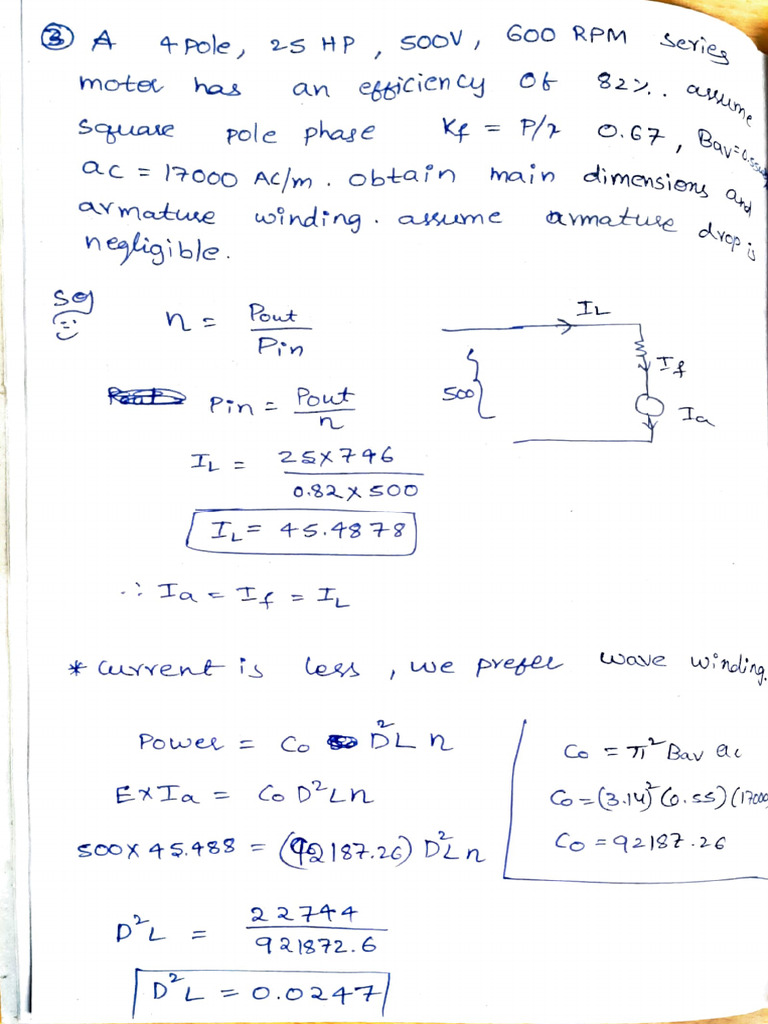 ③ A 4 pole, 25 HP, 500V, 600 RPM series
motor has an efficiency of 82%. assume
square pole phase Kf = P/2 0.67, Bav=0.55
ac = 17000 AC/m. obtain main dimensions and
armature winding. assume armature drop is
negligible.
Sol
n = Pout / Pin
Pin = Pout / n
IL = 25×746 / 0.82×500
IL = 45.4878
IL
500
If
Ia
∴ Ia = If = IL
* current is less, we prefer wave winding.
Power = Co D²L n
E×Ia = Co D²Ln
500×45.488 = (92187.26) D²Ln
D²L = 22744 / 921872.6
D²L = 0.0247
Co = π² Bav ac
Co = (3.14)² (0.55) (17000
Co = 92187.26